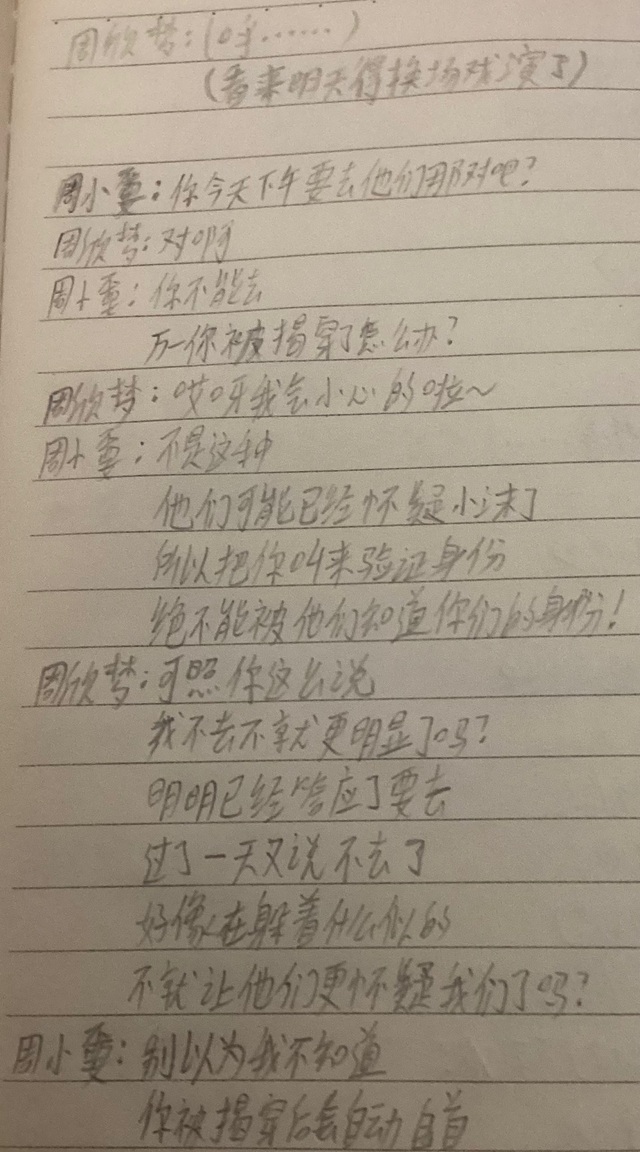 周欣梦：(呼……)
(看来明天得换场戏演了)
周小重：你今天下午要去他们那对吧？
周欣梦：对啊
周小重：你不能去
万一你被揭穿了怎么办？
周欣梦：哎呀我会小心的啦～
周小重：不是这种
他们可能已经怀疑小沫了
所以把你叫来验证身份
绝不能被他们知道你们的身份！
周欣梦：可照你这么说
我不去不就更明显了吗？
明明已经答应了要去
过了一天又说不去了
好像在躲着什么似的
不就让他们更怀疑我们了吗？
周小重：别以为我不知道
你被揭穿后会自动自首